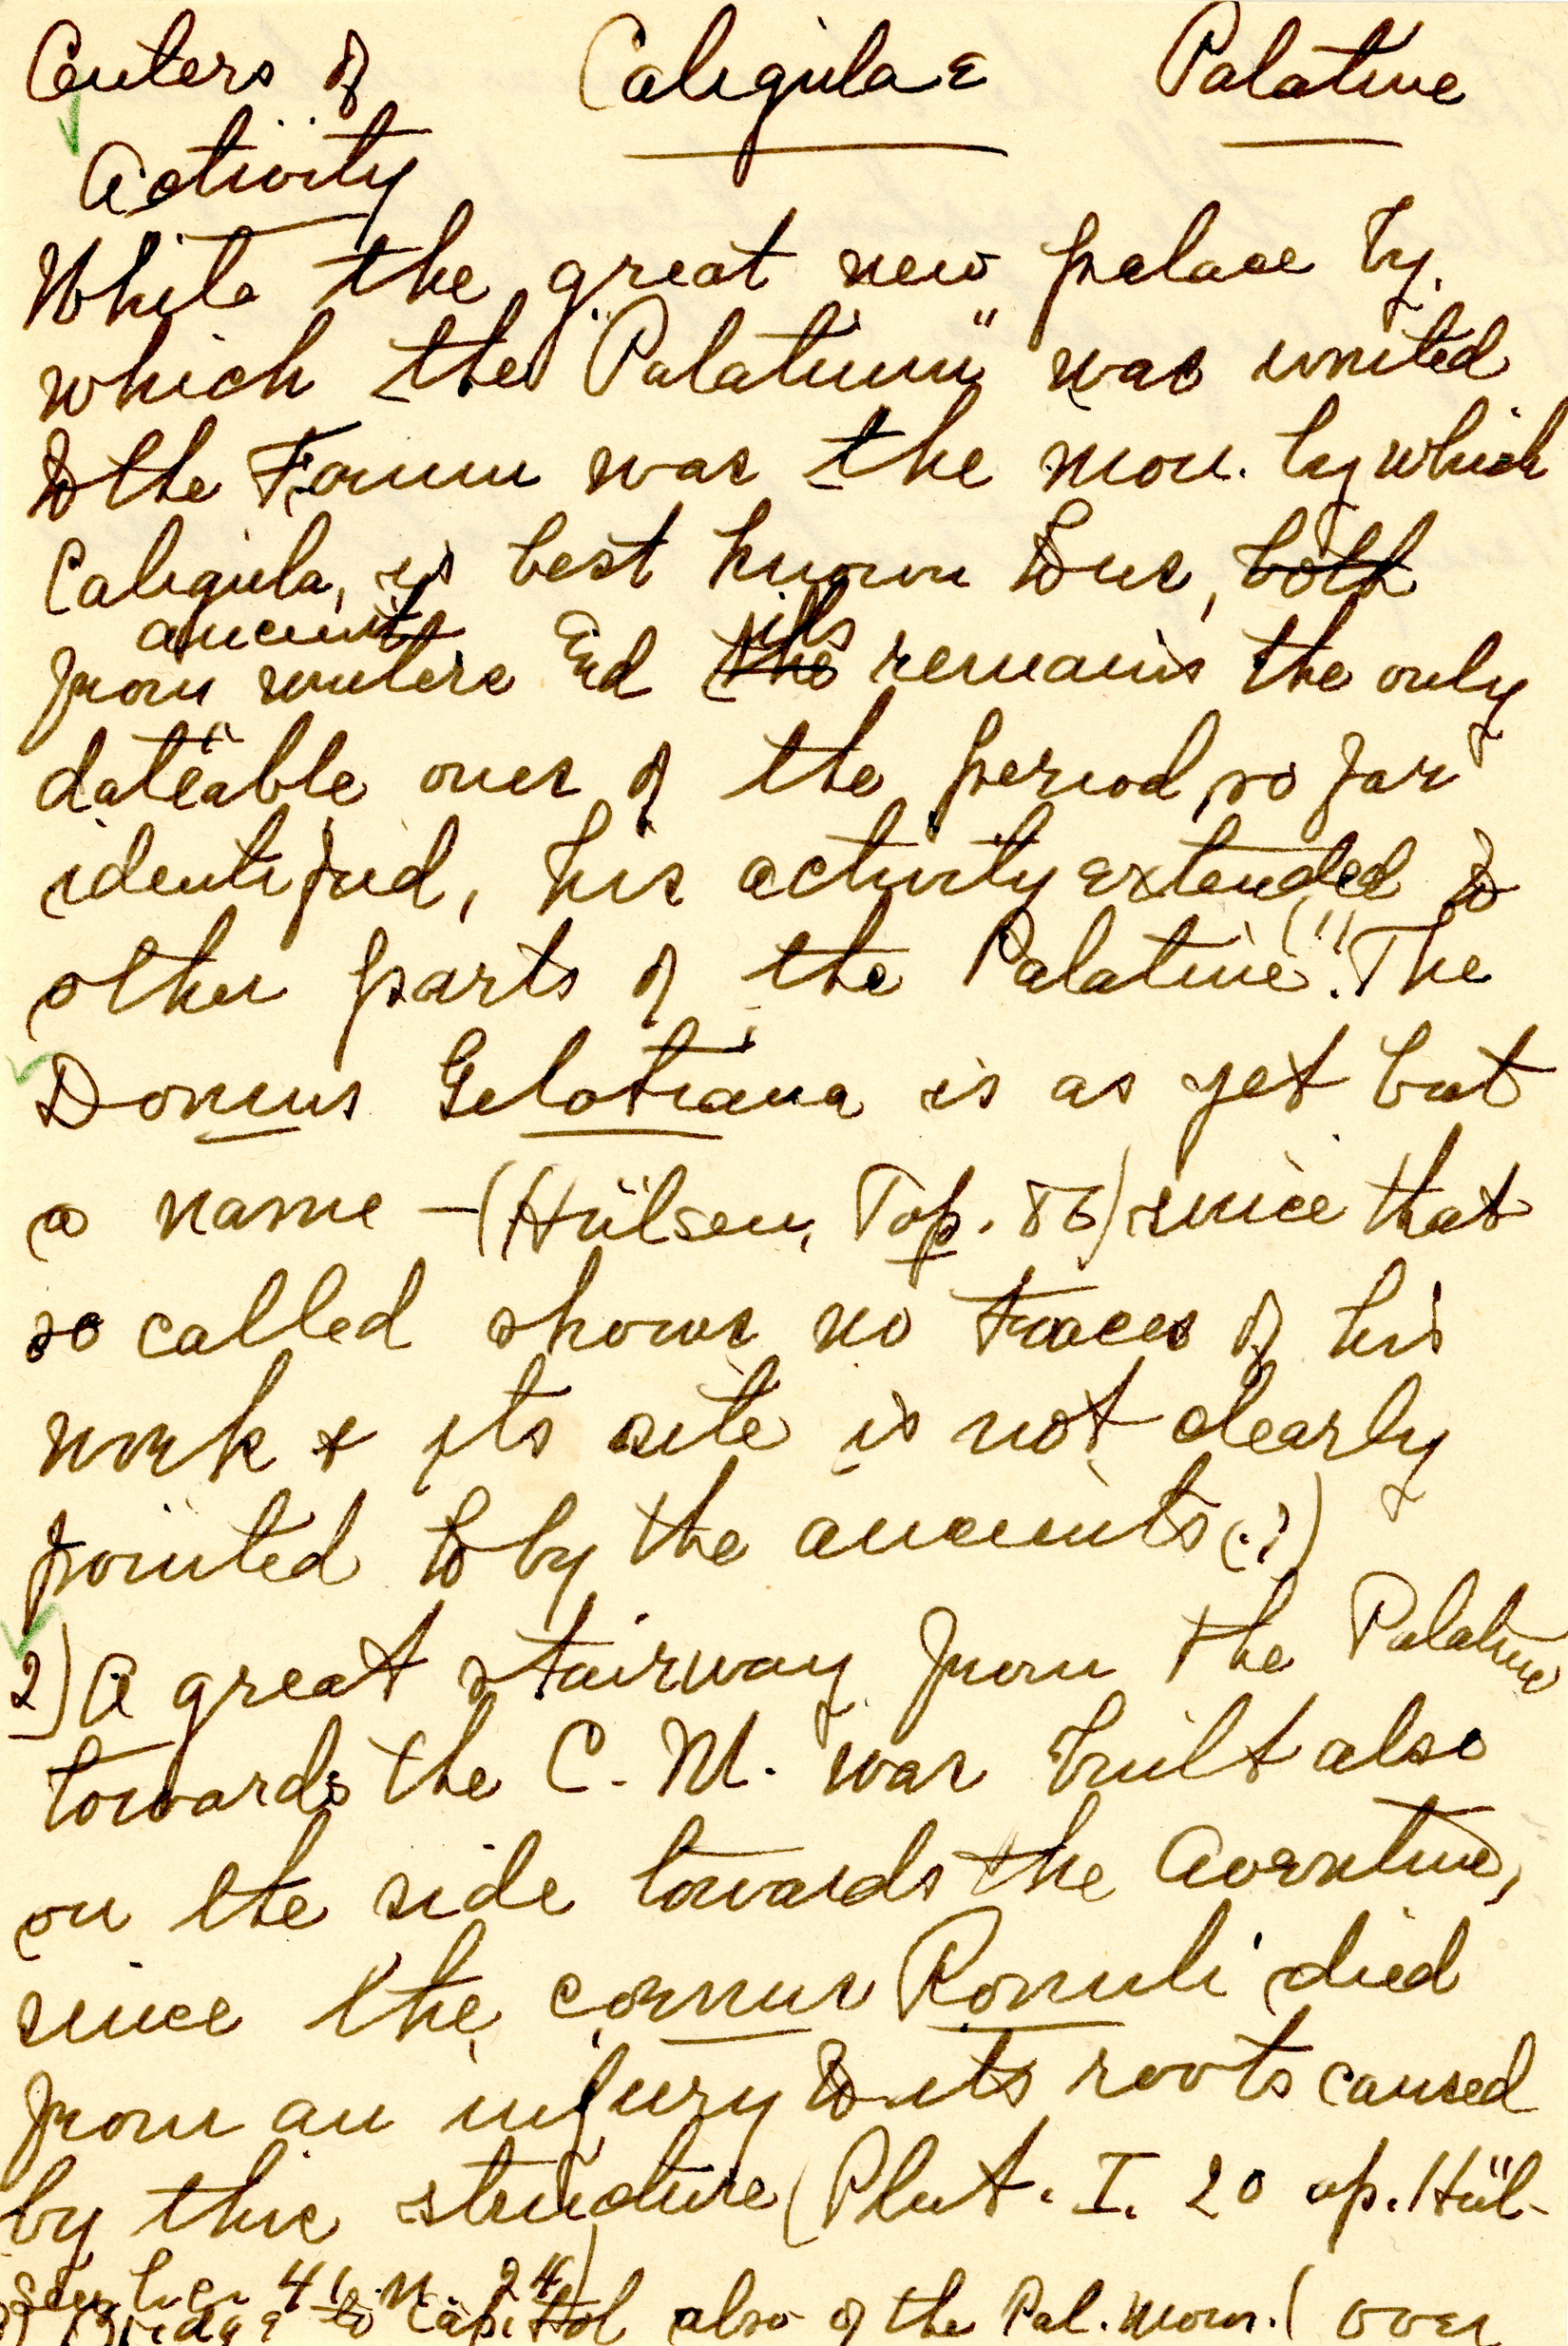 Centers of Caligulae Palatine
Activity
While the great new palace by
which the "Palatium" was united
to the Forum was the mon. by which
Caligula, is best known to us, both
ancient its
from writers and the remains the only
dateable ones of the period so far
identified, his activity extended to
other parts of the Palatine (1). The
Domus Gelotiana is as yet but
a name - (Hülsen, Top. 86) since that
so called shows no traces of his
work & its site is not clearly
pointed to by the ancients (?)
2) A great stairway from the Palatine
towards the C. M. was built also
on the side towards the Aventine,
since the cornus Romuli died
from an injury to its roots caused
by this structure (Plut. I. 20 ap. Hül-
sen 41 n. 24)
Bridge to Capitol also of the Pal. mon. (over